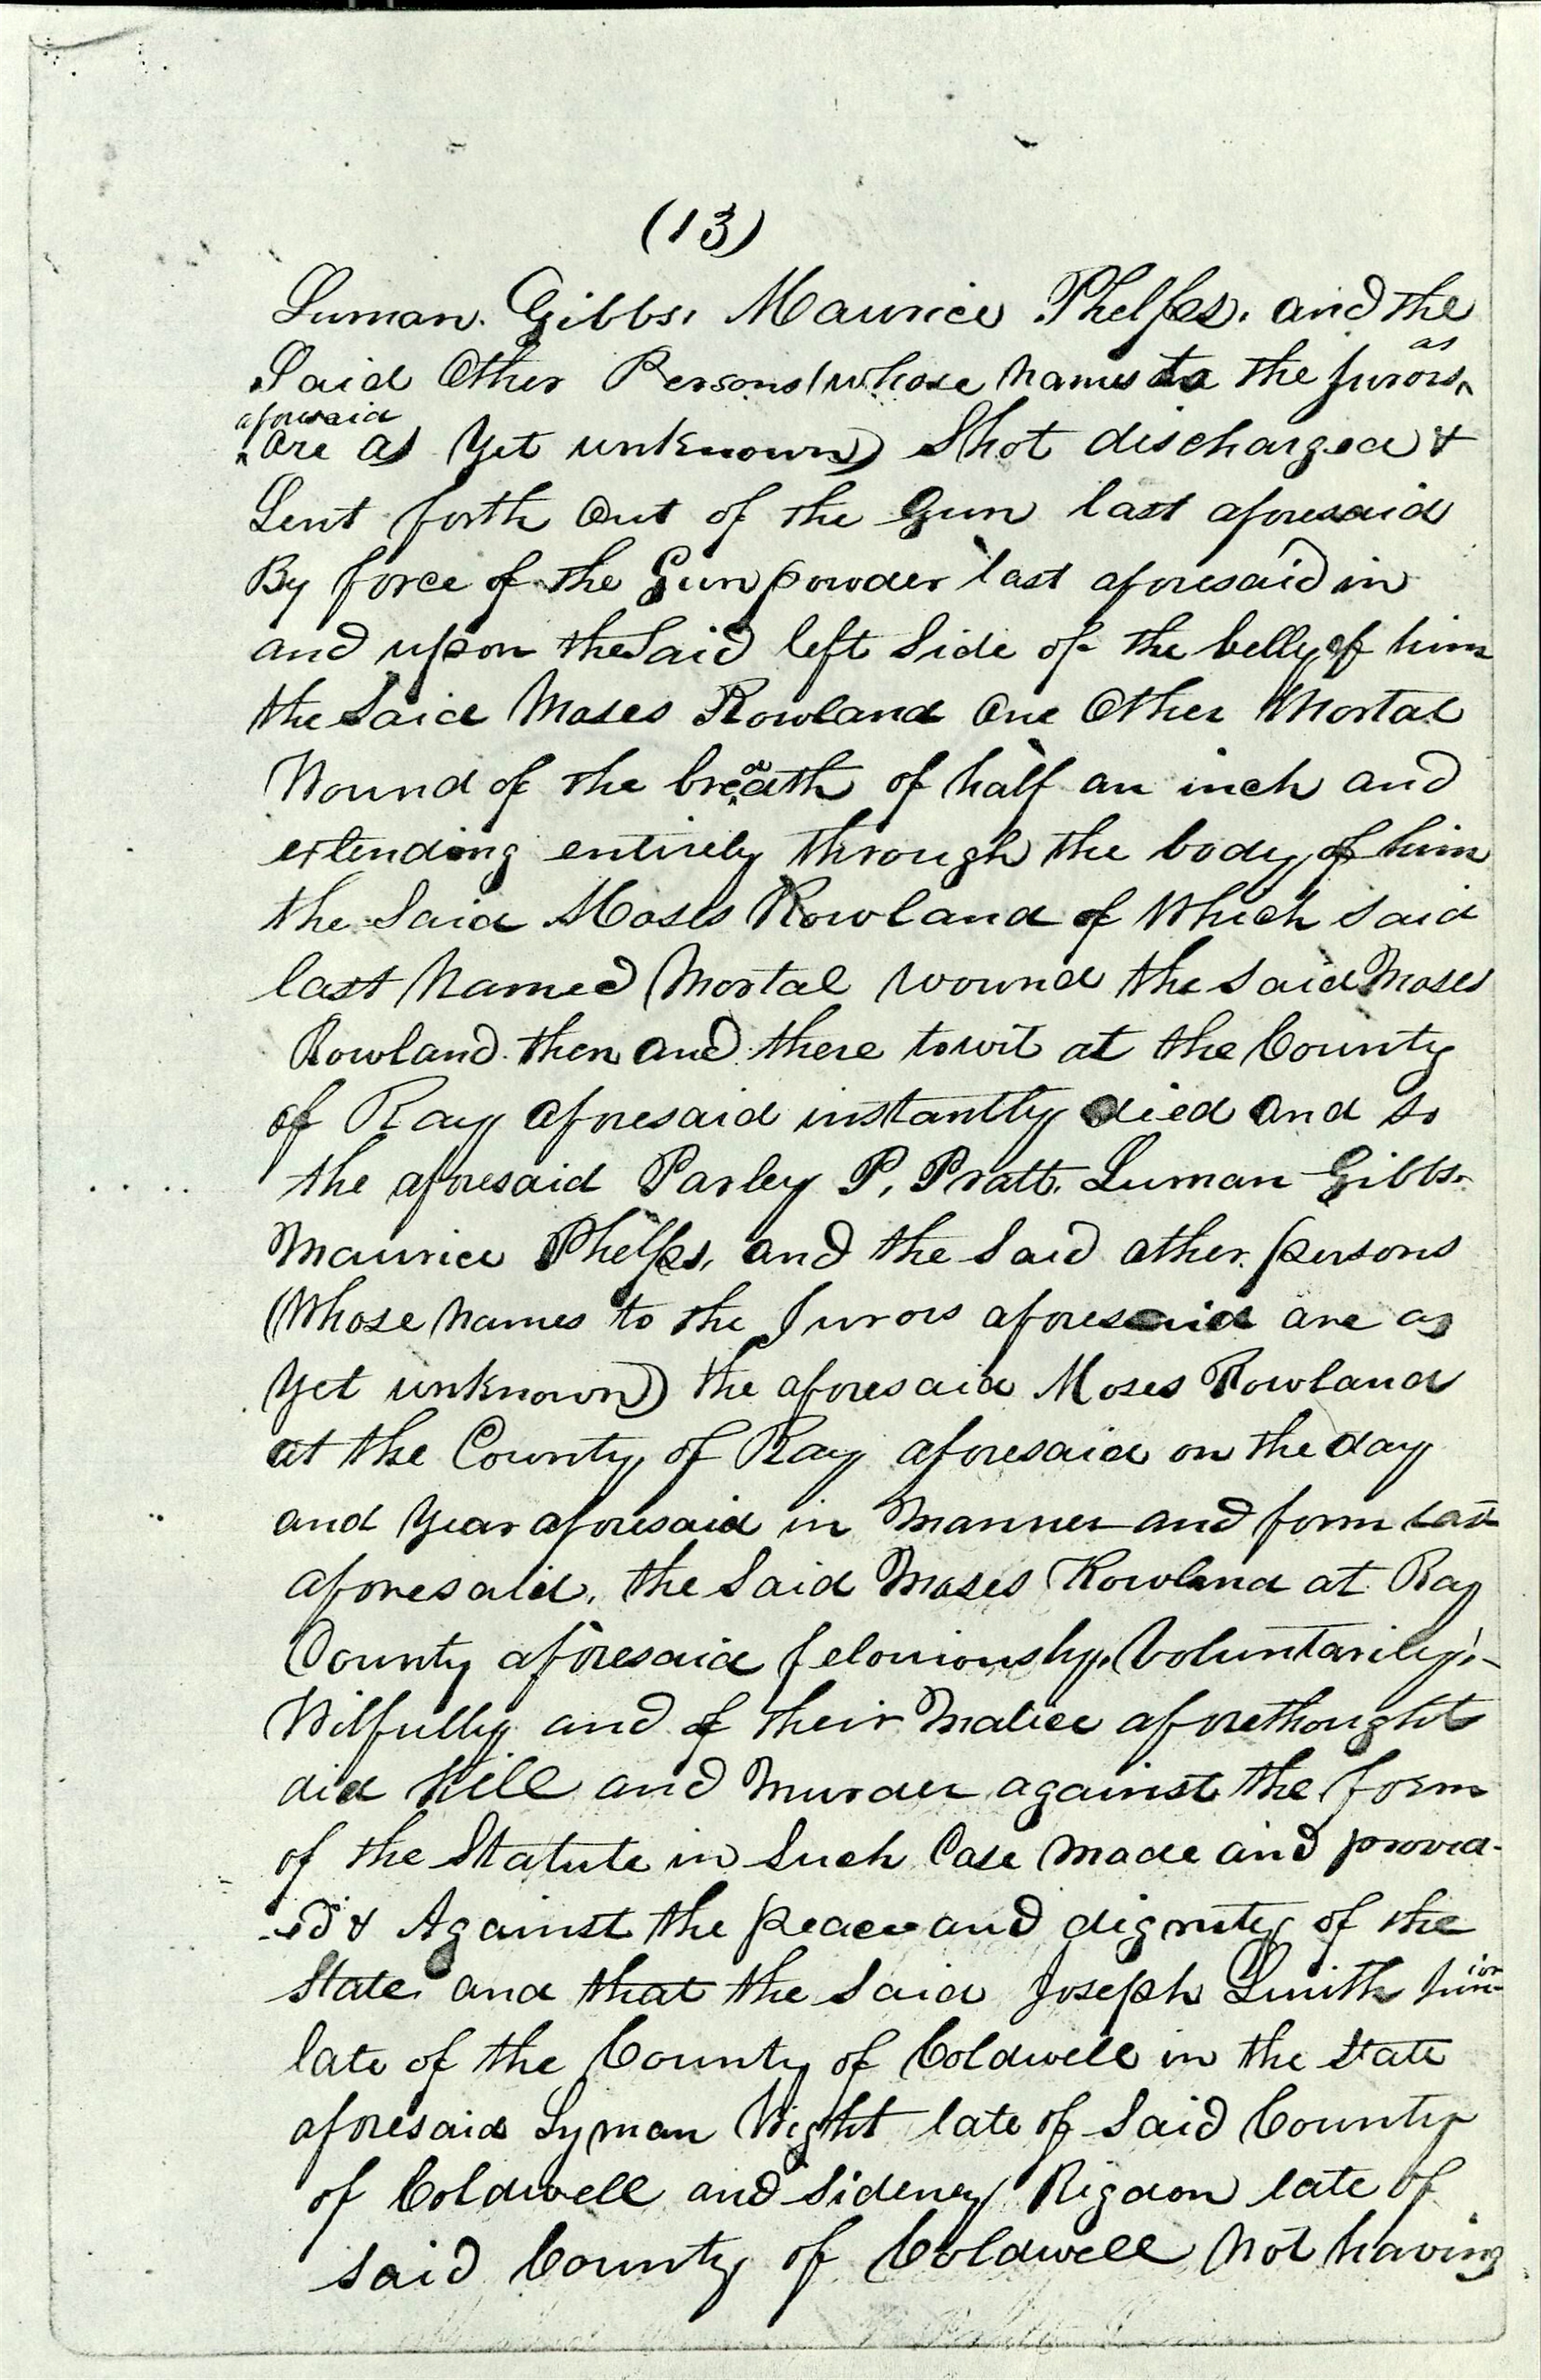 (13)
Luman. Gibbs, Maurice Phelps, and the
Said Other Persons (whose names to the Jurors as
aforesaid are as yet unknown) Shot discharged &
Sent forth out of the Gun last aforesaid
By force of the Gunpowder last aforesaid in
and upon the Said left Side of the belly of him
the Said Moses Rowland One Other Mortal
Wound of the breadth of half an inch and
extending entirely through the body of him
the Said Moses Rowland of Which said
last Named Mortal wound the said Moses
Rowland then and there towit at the County
of Ray aforesaid instantly died and so
the aforesaid Parley P. Pratt. Luman Gibbs.
Maurice Phelps, and the Said other persons
(Whose names to the Jurors aforesaid are as
yet unknown) the aforesaid Moses Rowland
at the County of Ray aforesaid on the day
and Year aforesaid in Manner and form last
aforesaid, the Said Moses Rowland at Ray
County aforesaid feloniously, Voluntarily,
Wilfully and of their Malice aforethought
did Kill and Murder against the form
of the Statute in Such Case Made and provid-
-ed & Against the peace and dignity of the
State, and that the Said Joseph Smith Junior
late of the County of Coldwell in the State
aforesaid Lyman Wight late of Said County
of Coldwell and Sideney Rigdon late of
said County of Coldwell Not having